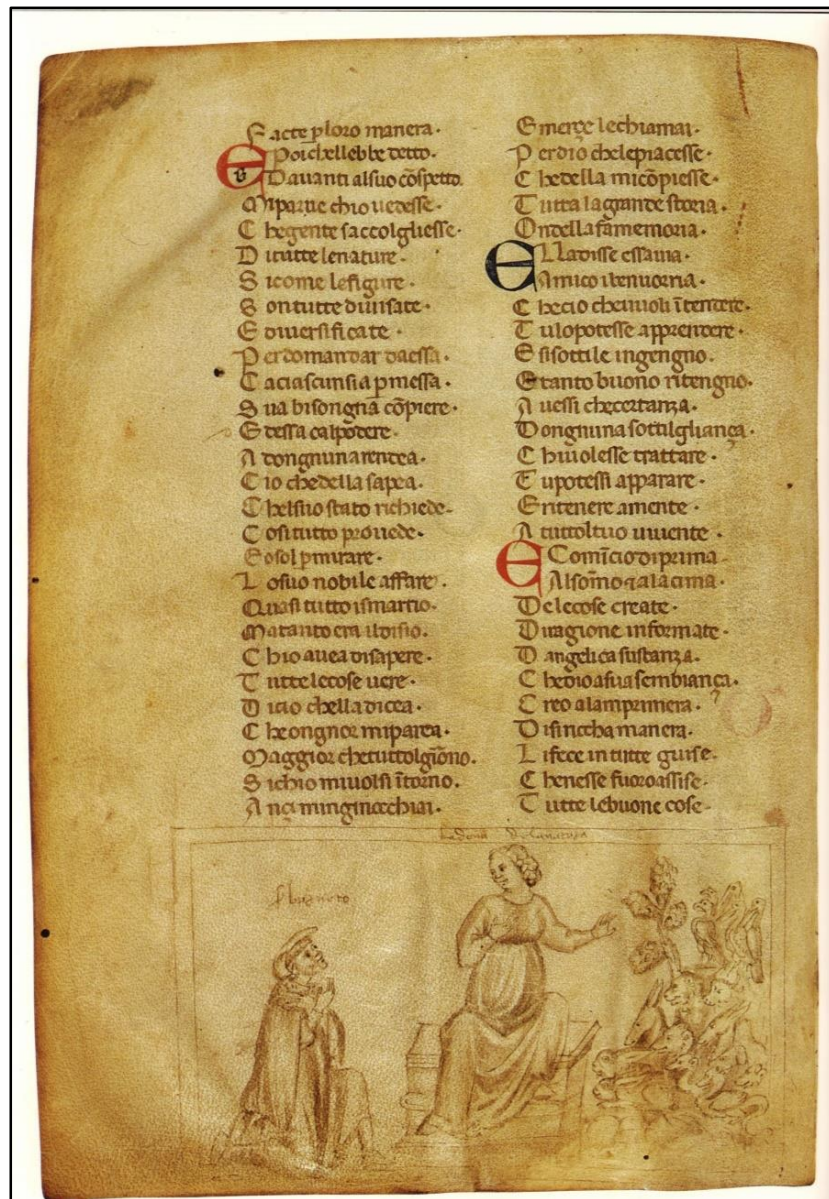 Facte p loro manera.
E Poi chellebbe detto.
Davanti al suo cōspetto.
Mi parue chio uedesse.
Che gente saccolgliesse.
Di tutte le nature.
Si come le figure.
Son tutte diuisate.
E diuersificate.
Per domandar da essa.
Ca ciascun sia pmessa.
Sua bisongna cōpiere.
Ed essa cal podere.
Ad ongnun a rendea.
Cio chedella sapea.
Chel suo stato richiede.
Cosi tutto prouede.
Eo sol p mirare.
Lo suo nobile affare.
Quasi tutto ismartio.
Ma tanto era il disio.
Chio auea di sapere.
Tutte le cose uere.
Di cio chella dicea.
Che ongnor mi parea.
Maggior che tuttol giōno.
Si chio mi uolsi ītorno.
Ançi mingincchiai.
E merçe le chiamai.
Per dio che le piacesse.
Chedella mi cōpiesse.
Tutta la grande storia.
Ondella fa memoria.
Ella disse essauia.
Amico i ben uorria.
Che cio cheuuoli ītendere.
Tu lo potesse apprendere.
E si sottile ingengno.
E tanto buono ritengno.
Auessi che certanza.
Dongnuna sottilgliança.
Chiuolesse trattare.
Tu potessi apparare.
E ritenere a mente.
A tuttol tuo uiuente.
E Comīcio di prima
Al sōmo 7 a la cima.
De le cose create.
Di ragione informate.
D angelica sustanza.
Che dio a sua sembiança.
Creo a la mprimera.
Di si riccha manera.
Li fece in tutte guise.
Chenesse fuoro assise.
Tutte le buone cose.